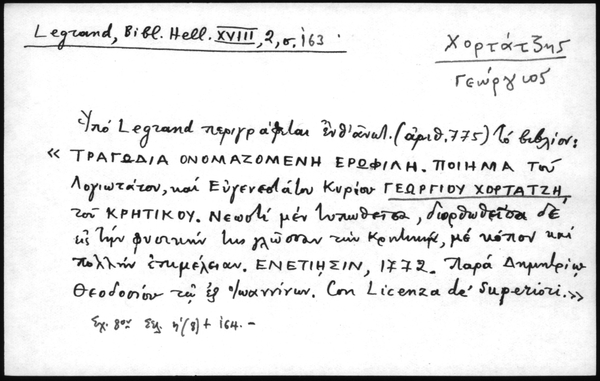 Legrand, Bibl. Hell. XVIII, 2, σ. 163.
Χορτάτζης
Γεώργιος
Ὑπό Legrand περιγράφεται ἐνθ' ἀνωτ. (ἀριθ. 775) τό βιβλίον:
« ΤΡΑΓΩΔΙΑ ΟΝΟΜΑΖΟΜΕΝΗ ΕΡΩΦΙΛΗ. ΠΟΙΗΜΑ Τοῦ
Λογιωτάτου, καί Εὐγενεστάτου Κυρίου ΓΕΩΡΓΙΟΥ ΧΟΡΤΑΤΖΗ,
τοῦ ΚΡΗΤΙΚΟΥ. Νεωστί μέν τυπωθεῖσα, διορθωθεῖσα δέ
εἰς τήν φυσικήν της γλῶσσαν τῶν Κρητικῶν, μέ κόπον καί
πολλήν ἐπιμέλειαν. ΕΝΕΤΙΗΣΙΝ, 1772. Παρά Δημητρίῳ
Θεοδοσίου τῷ ἐξ Ἰωαννίνων. Con Licenza de' Superiori.»
Σχ. 8ον Σελ. η'(8) + 164. –